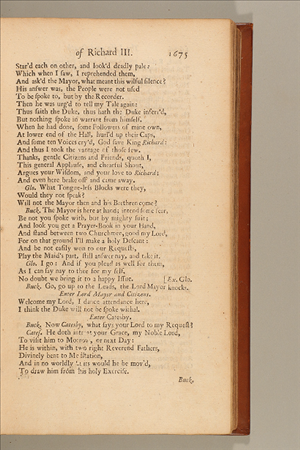 of Richard III. 1675
Star'd each on other, and look'd deadly pale:
Which when I saw, I reprehended them,
And ask'd the Mayor, what meant this wilful silence?
His answer was, the People were not used
To be spoke to, but by the Recorder.
Then he was urg'd to tell my Tale again:
Thus saith the Duke, thus hath the Duke inferr'd,
But nothing spoke in warrant from himself.
When he had done, some Followers of mine own,
At lower end of the Hall, hurl'd up their Caps,
And some ten Voices cry'd, God save King Richard:
And thus I took the vantage of those few.
Thanks, gentle Citizens and Friends, quoth I,
This general Applause, and chearful Shout,
Argues your Wisdom, and your love to Richard:
And even here brake off and came away.
Glo. What Tongue-less Blocks were they,
Would they not speak?
Will not the Mayor then and his Brethren come?
Buck. The Mayor is here at hand; intend some fear,
Be not you spoke with, but by mighty suit;
And look you get a Prayer-Book in your Hand,
And stand between two Churchmen, good my Lord,
For on that ground I'll make a holy Descant:
And be not easily won to our Requests,
Play the Maid's part, still answer nay, and take it.
Glo. I go: And if you plead as well for them,
As I can say nay to thee for my self,
No doubt we bring it to a happy Issue. [Ex. Glo.
Buck. Go, go up to the Leads, the Lord Mayor knocks.
Enter Lord Mayor and Citizens.
Welcome my Lord, I dance attendance here,
I think the Duke will not be spoke withal.
Enter Catesby.
Buck. Now Catesby, what says your Lord to my Request?
Catesf. He doth intreat your Grace, my Noble Lord,
To visit him to Morrow, or next Day:
He is within, with two right Reverend Fathers,
Divinely bent to Meditation,
And in no worldly Suits would he be mov'd,
To draw him from his holy Exercise.
Buck.